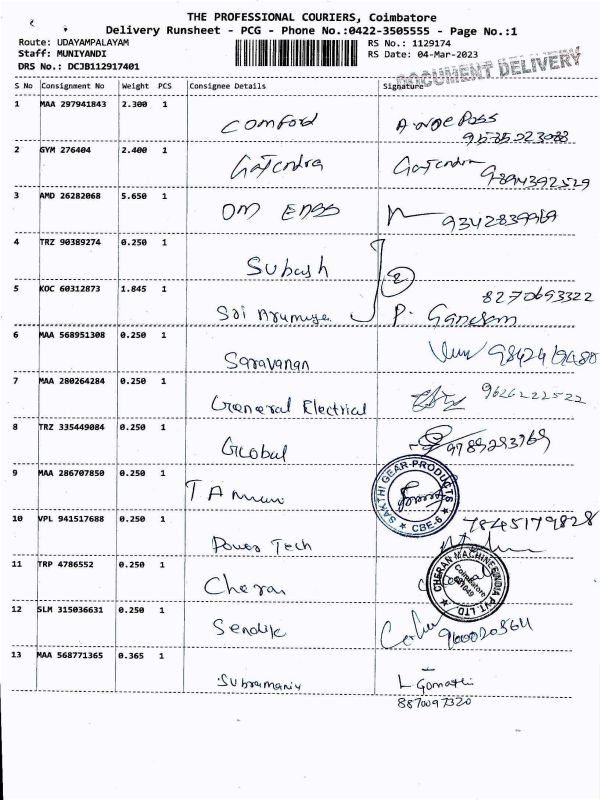 THE PROFESSIONAL COURIERS, Coimbatore
Delivery Runsheet - PCG - Phone No.:0422-3505555 - Page No.:1
Route: UDAYAMPALAYAM RS No.: 1129174
Staff: MUNIYANDI RS Date: 04-Mar-2023
DRS No.: DCJB112917401
DOCUMENT DELIVERY
S No Consignment No Weight PCS Consignee Details Signature
1 MAA 297941843 2.300 1
Comford
2 GYM 276404 2.400 1
Gajendra Gajendra
9894392529
3 AMD 26282068 5.650 1
OM ENGG 9342839969
4 TRZ 90389274 0.250 1
Subash 2
5 KOC 60312873 1.845 1 8270693322
Sri Arumuga P. Ganesam
6 MAA 568951308 0.250 1
Saravanan
7 MAA 280264284 0.250 1 9626222522
General Electrical
8 TRZ 335449084 0.250 1 9789293769
Global
9 MAA 286707850 0.250 1
SAKTHI GEAR PRODUCTS
CBE-6
10 VPL 941517688 0.250 1 7845179828
Power Tech
11 TRP 4786552 0.250 1
Cheran
CHERAN MACHINES INDIA PVT. LTD.
Coimbatore
12 SLM 315036631 0.250 1
Sendik
13 MAA 568771365 0.365 1
Subramaniy L Gomathi
8870097320